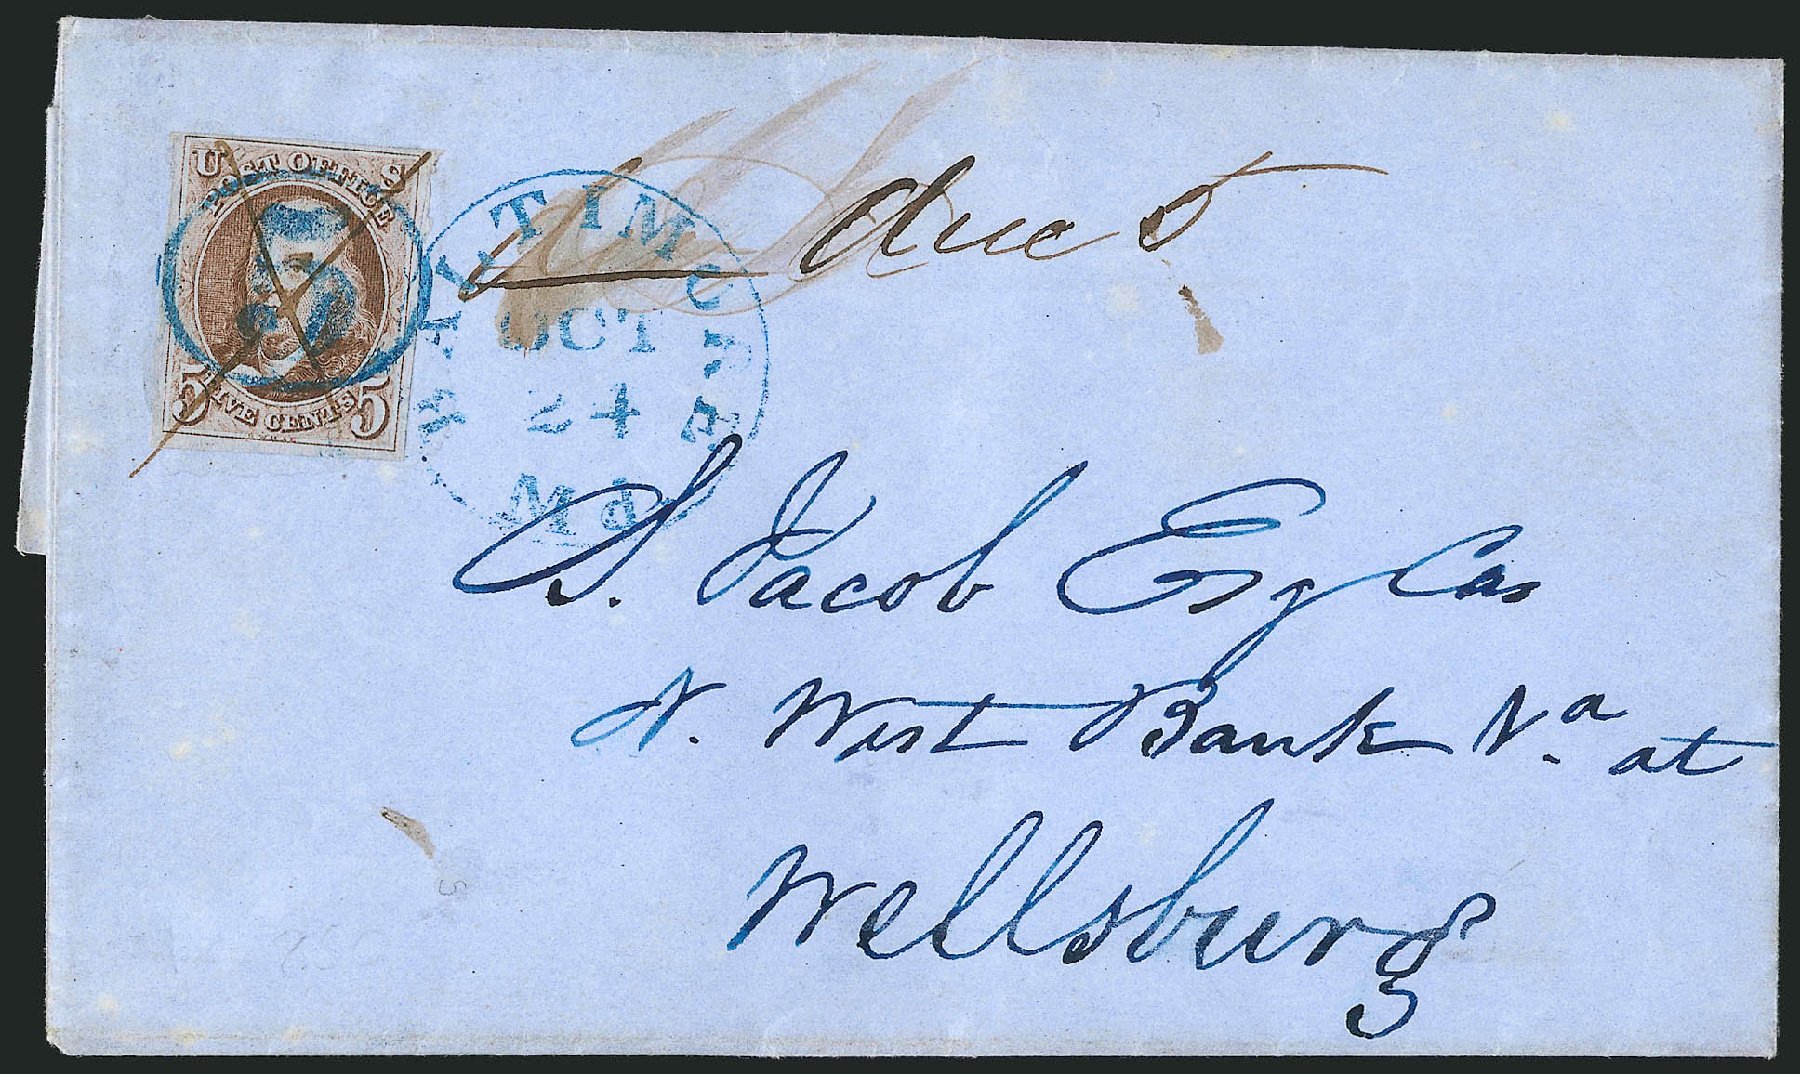 U S
POST OFFICE
5
FIVE CENTS
5 5
BALTIMORE
OCT
24
Md
due 5
S. Jacob Esq Cas
N. West Bank Va at
Wellsburg